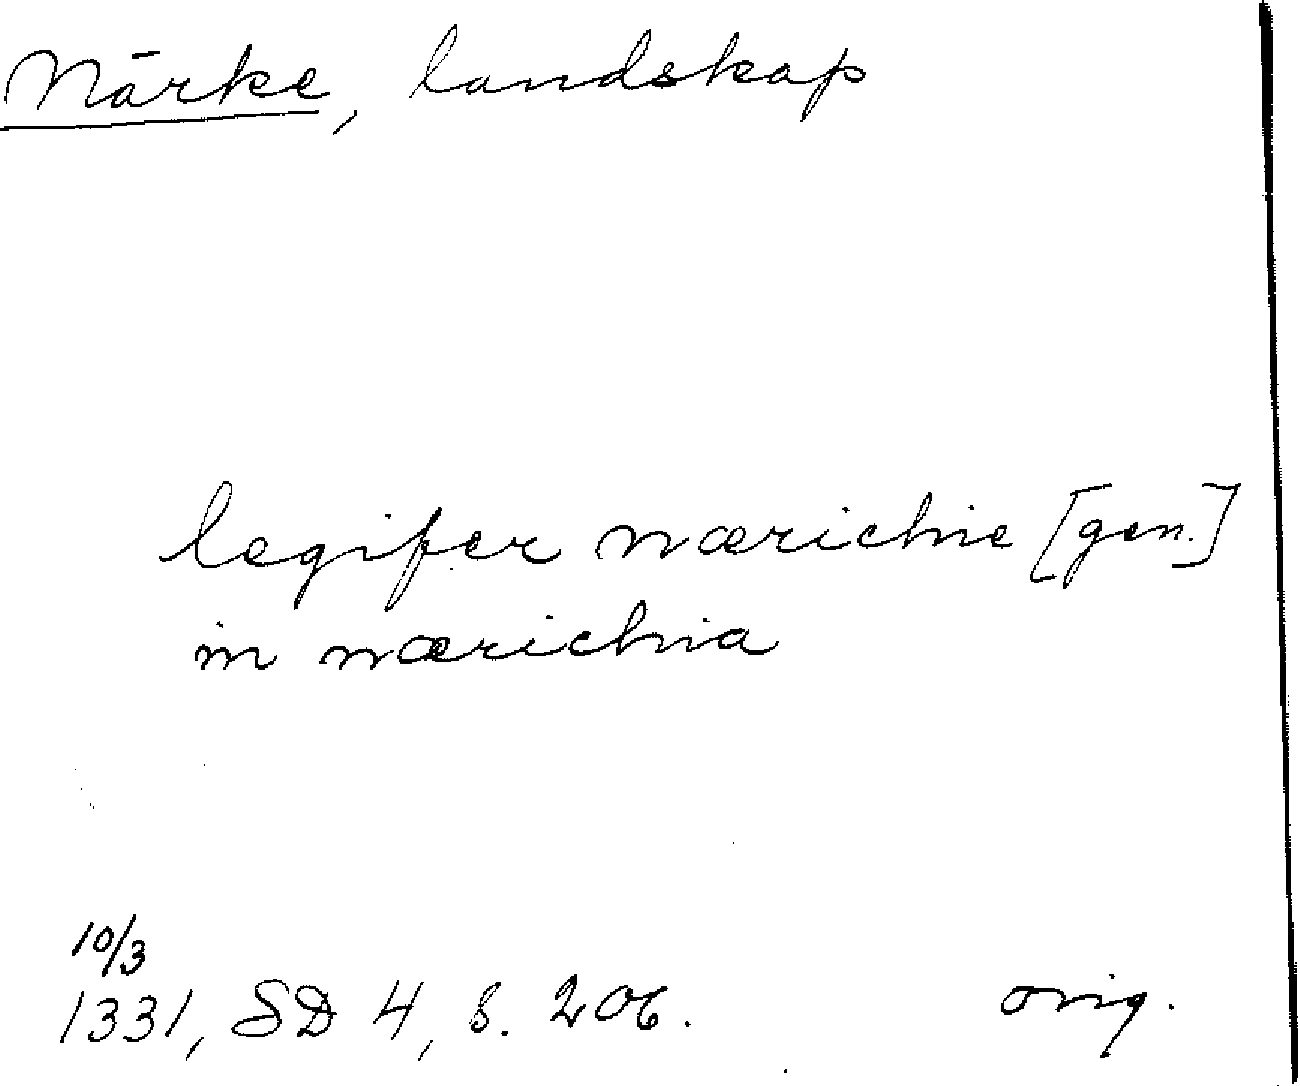 Närke, landskap
legifer nærichie [gen.]
in nærichia
10/3
1331, SD 4, s. 206. orig.